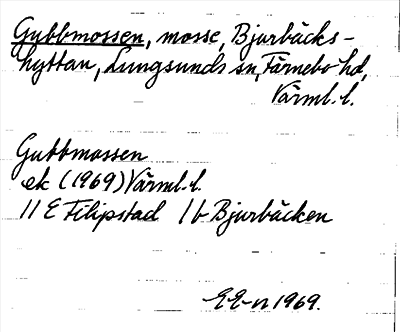 Gubbmossen, mosse, Bjurbäcks-
hyttan, Lungsunds sn, Färnebo hd,
Värml. l.
Gubbmossen
ek (1969) Värml. l.
11 E Filipstad 1b Bjurbäcken
EE-n 1969.